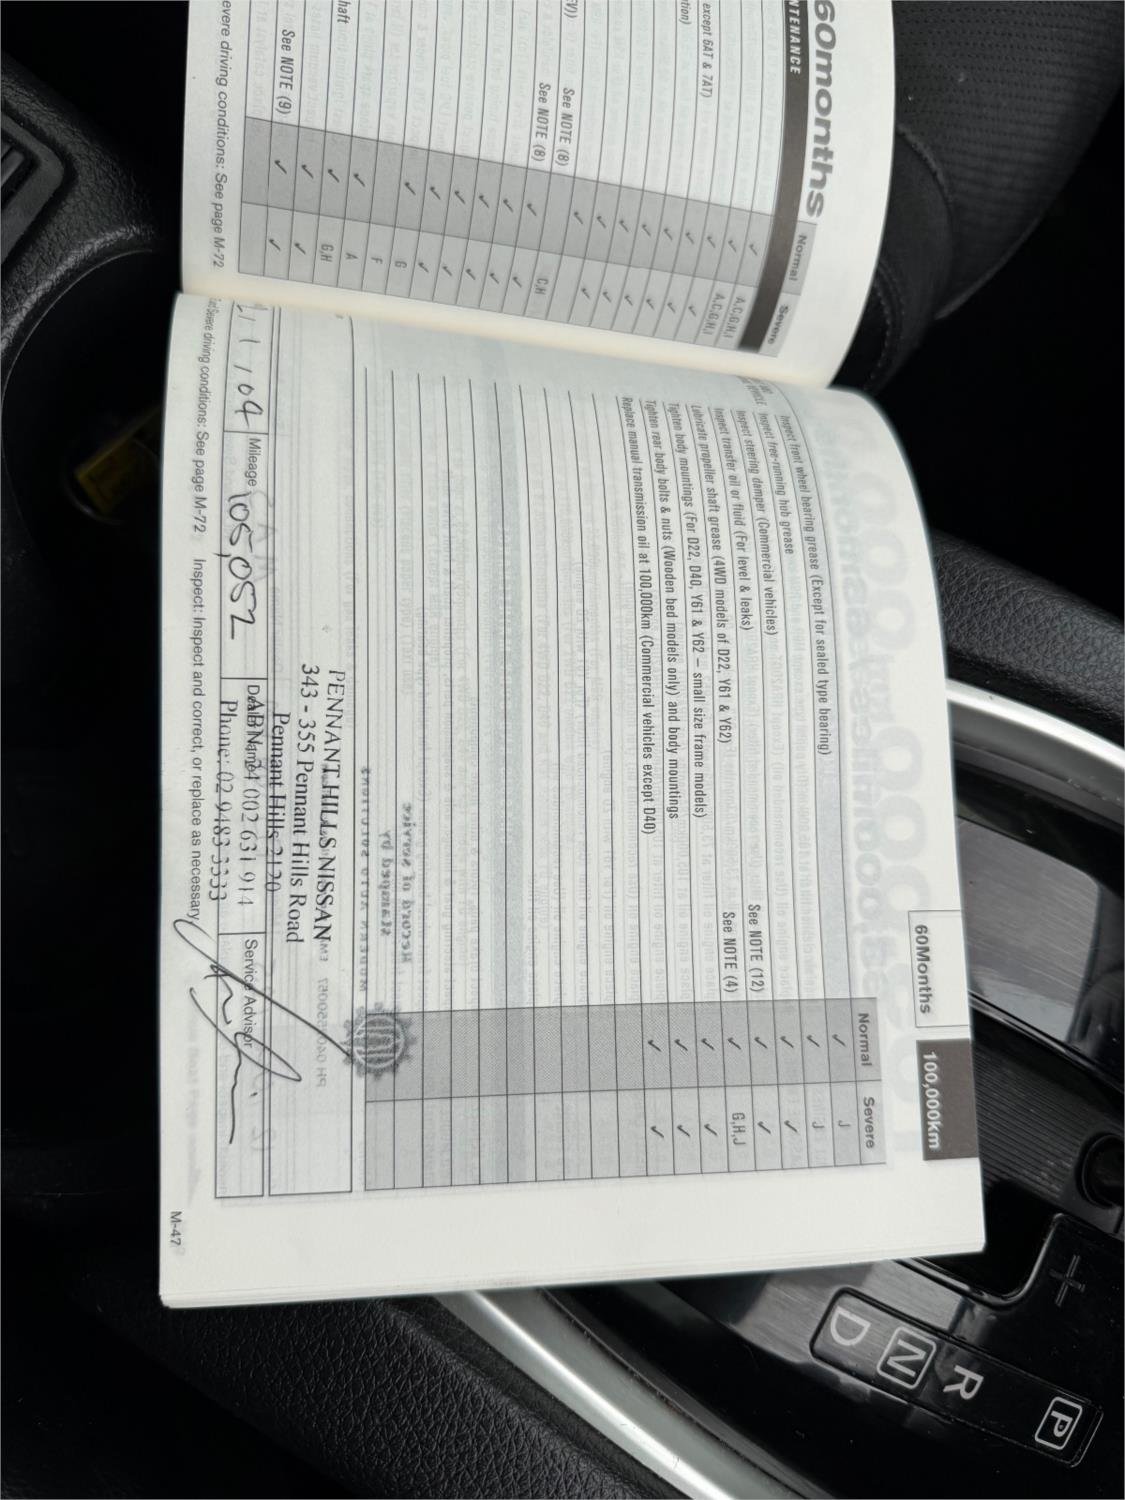 60months
MAINTENANCE
Normal
Severe
except 6AT & 7AT)
A,C,G,H,I
A,C,G,H,I
See NOTE (8)
See NOTE (8)
C,H
G
F
A
haft
G,H
See NOTE (9)
evere driving conditions: See page M-72
60Months
100,000km
Normal
Severe
Inspect front wheel bearing grease (Except for sealed type bearing)
J
Inspect free-running hub grease
J
Inspect steering damper (Commercial vehicles)
Inspect transfer oil or fluid (For level & leaks)
See NOTE (12)
Lubricate propeller shaft grease (4WD models of D22, Y61 & Y62)
See NOTE (4)
G,H,J
Tighten body mountings (For D22, D40, Y61 & Y62 – small size frame models)
Tighten rear body bolts & nuts (Wooden bed models only) and body mountings
Replace manual transmission oil at 100,000km (Commercial vehicles except D40)
PENNANT HILLS NISSAN
343 - 355 Pennant Hills Road
Pennant Hills 2120
ABN 002 631 914
Phone: 02 9483 3333
Mileage 105,052
Service Advisor
Severe driving conditions: See page M-72
Inspect: Inspect and correct, or replace as necessary.
M-47
P
R
N
D
+